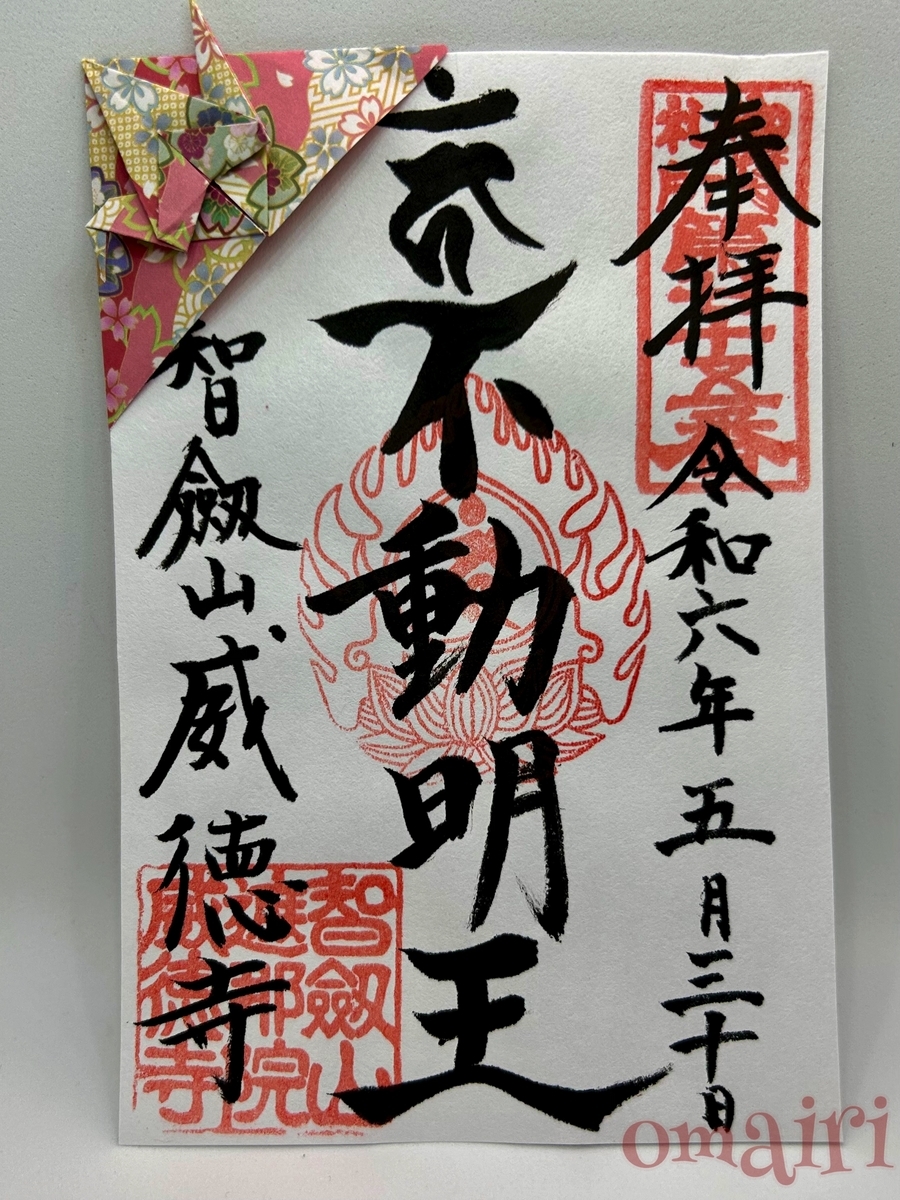 奉拝
令和六年五月三十日
不動明王
智劔山威徳寺
智劔山
遮那院
威徳寺
omairi